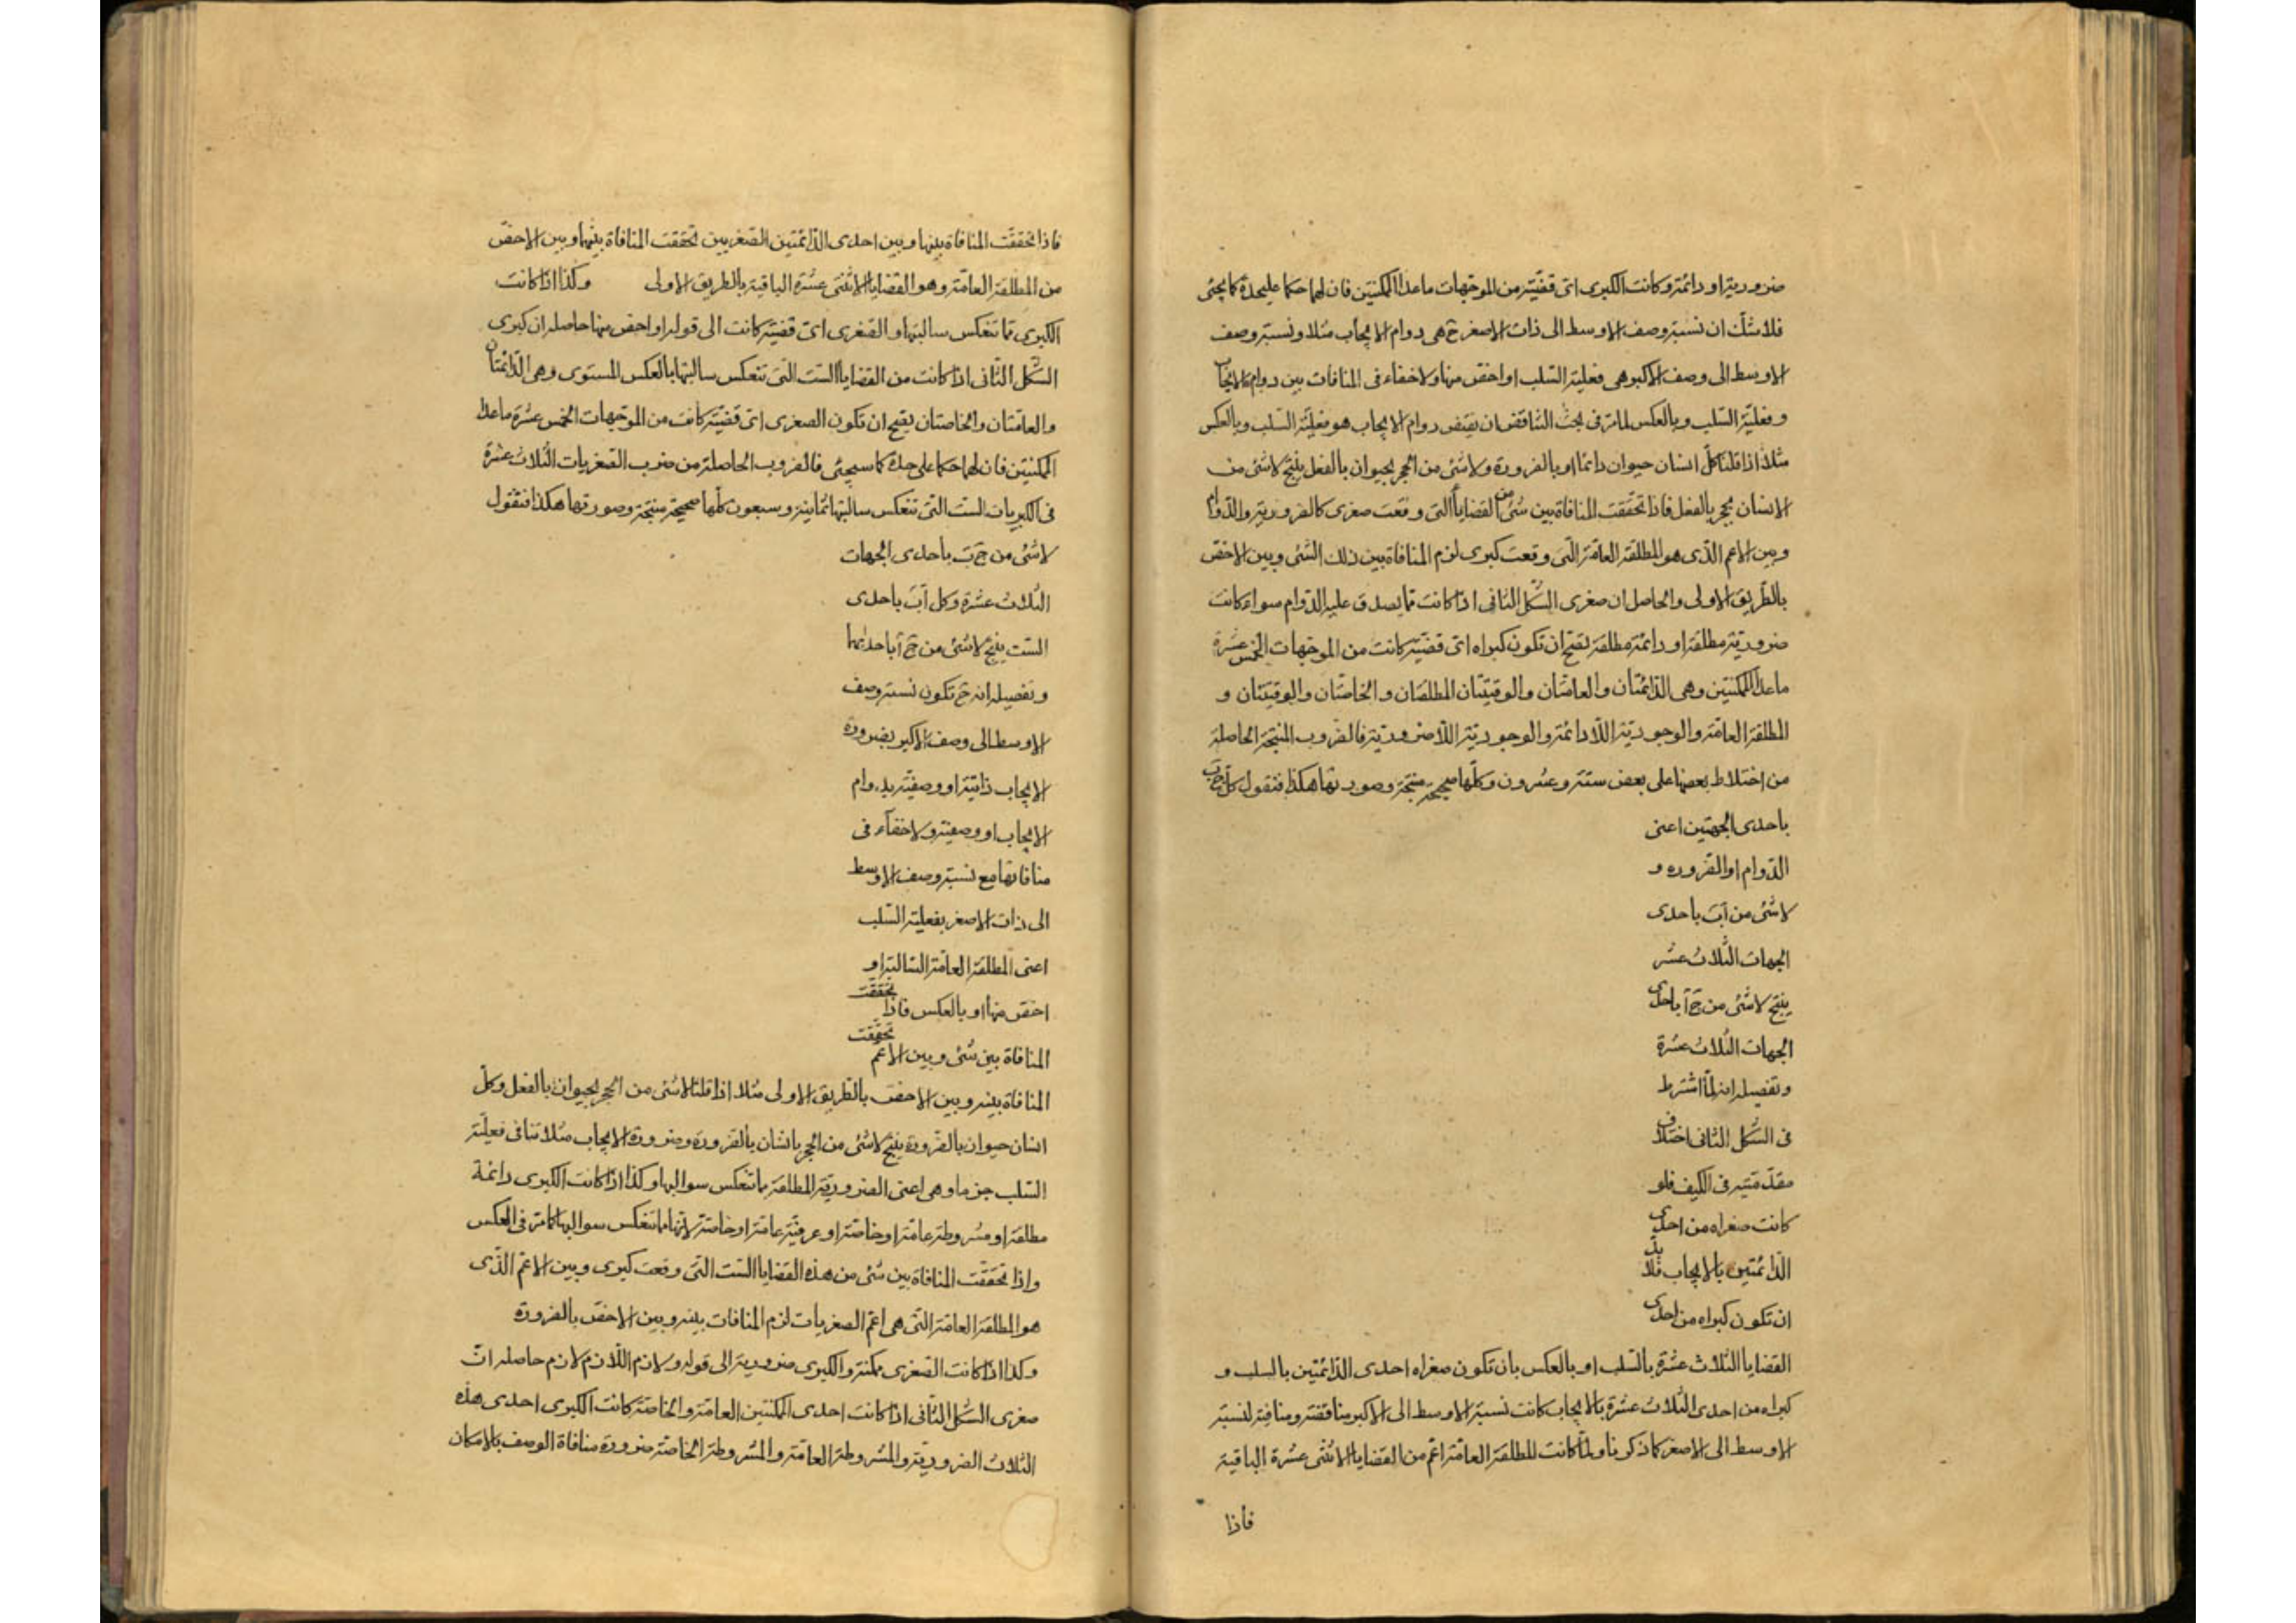 ضرورية او دائمة وكانت الكبرى اى قضيّة من الموجّهات ماعدا الممكنتين فان لهما حكما عليحدة كما يجئ
فلاشكّ ان نسبة وصف الاوسط الى ذات الاصغر ح هى دوام الايجاب مثلا ونسبة وصف
الاوسط الى وصف الاكبر هى فعلية السّلب او اخصّ منها ولا خفاء فى المنافات بين دوام الايجاب
وفعليّة السّلب وبالعكس لما مرّ فى بحث التناقض ان نقيض دوام الايجاب هو فعليّة السّلب وبالعكس
مثلا اذا قلنا كلّ انسان حيوان دائما او بالضرورة ولا شئ من الحجر بحيوان بالفعل ينتج لا شئ من
الانسان بحجر بالفعل فاذا تحقّقت المنافاة بين شئ من القضايا التى وقعت صغرى كالضروريّة والدّوام
وبين الاعم الذّى هو المطلقة العامّة الّتى وقعت كبرى لزم المنافاة بين ذلك الشّئ وبين الاخصّ
بالطّريق الاولى والحاصل ان صغرى الشّكل الثّانى اذا كانت ممّا يصدق عليه الدّوام سواء كانت
ضروريّة مطلقة او دائمة مطلقة يصحّ ان تكون كبراه اى قضيّة كانت من الموجّهات الخمس عشرة
ماعدا الممكنتين وهى الدّائمتان والعامّتان والوقتيّتان المطلقتان والخاصّتان والوقتيّتان و
المطلقة العامّة والوجوديّة اللّادائمة والوجوديّة اللّاضروريّة فالضروب المنتجة الحاصلة
من اختلاط بعضها على بعض ستّة وعشرون وكلّها صحيحة منتجة وصورتها هكذا فنقول كلّ ج ب
باحدى الجهتين اعنى
الدّوام او الضّرورة و
لا شئ من آ ب باحدى
الجهات الثّلاث عشر
ينتج لا شئ من ج آ باحدى
الجهات الثّلاث عشرة
وتفصيله انه لمّا اشترط
فى الشّكل الثّانى اختلاف
مقدّمتيه فى الكيف فلو
كانت صغراه من احدى
الدّائمتين بالايجاب فلابدّ
ان تكون كبراه من احدى
القضايا الثّلاث عشرة بالسّلب او بالعكس بان تكون صغراه احدى الدّائمتين بالسلب و
كبراه من احدى الثّلاث عشرة بالايجاب كانت نسبة الاوسط الى الاكبر مناقضة ومنافية لنسبة
الاوسط الى الاصغر كما ذكرنا ولمّا كانت المطلقة العامّة اعمّ من القضايا الاثنى عشرة الباقية
فاذا
فاذا تحقّقت المنافاة بينها وبين احدى الدّائمتين الصّغريين تحقّقت المنافاة بينها وبين الاخصّ
من المطلقة العامّة وهو القضايا الاثنى عشرة الباقية بالطريق الاولى وكذا اذا كانت
الكبرى ممّا تنعكس سالبتها والصّغرى اىّ قضيّة كانت الى قوله او اخصّ منها حاصله ان كبرى
الشّكل الثّانى اذا كانت من القضايا السّت الّتى تنعكس سالبتها بالعكس المستوى وهى الدّائمتان
والعامّتان والخاصتان يصحّ ان تكون الصغرى اىّ قضيّة كانت من الموجّهات الخمس عشرة ماعدا
الممكنتين فان لهما حكما على حدة كما سيجئ فالضروب الحاصلة من ضرب الصّغريات الثّلاث عشرة
فى الكبريات السّت الّتى تنعكس سالبتها ثمانية وسبعون كلّها صحيحة منتجة وصورتها هكذا فنقول
لا شئ من ج ب باحدى الجهات
الثّلاث عشرة وكل آ ب باحدى
السّت ينتج لا شئ من ج آ باحدايها
وتفصيله انه ح تكون نسبة وصف
الاوسط الى وصف الاكبر بضرورة
الايجاب ذاتيّة او وصفيّة بدوام
الايجاب او وصفية ولا خفآء فى
منافاتها مع نسبة وصف الاوسط
الى ذات الاصغر بفعلية السّلب
اعنى المطلقة العامّة السّالبة او
اخصّ منها او بالعكس فاذا تحقّقت
المنافاة بين شئ وبين الاعمّ تحقّقت
المنافاة بينه وبين الاخصّ بالطّريق الاولى مثلا اذا قلنا لا شئ من الحجر بحيوان بالفعل وكلّ
انسان حيوان بالضّرورة ينتج لا شئ من الحجر بانسان بالضّرورة وضرورة الايجاب مثلا تنافى فعليّة
السّلب جزما وهى اعنى الضروريّة المطلقة ممّا تنعكس سوالبها وكذا اذا كانت الكبرى دائمة
مطلقة او مشروطة عامّة او خاصّة او عرفيّة عامّة او خاصّة لانّها ممّا تنعكس سوالبها كما مرّ فى العكس
واذا تحقّقت المنافاة بين شئ من هذه القضايا السّت الّتى وقعت كبرى وبين الاعمّ الّذى
هو المطلقة العامّة الّتى هى اعمّ الصغريات لزم المنافات بينه وبين الاخصّ بالضرورة
وكذا اذا كانت الصّغرى ممكنة والكبرى ضروريّة الى قوله ولازم اللّازم لازم حاصله انّ
صغرى الشّكل الثّانى اذا كانت احدى الممكنتين العامّة والخاصّة كانت الكبرى احدى هذه
الثّلاث الضروريّة والمشروطة العامّة والمشروطة الخاصّة ضرورة منافاة الوصف بالامكان